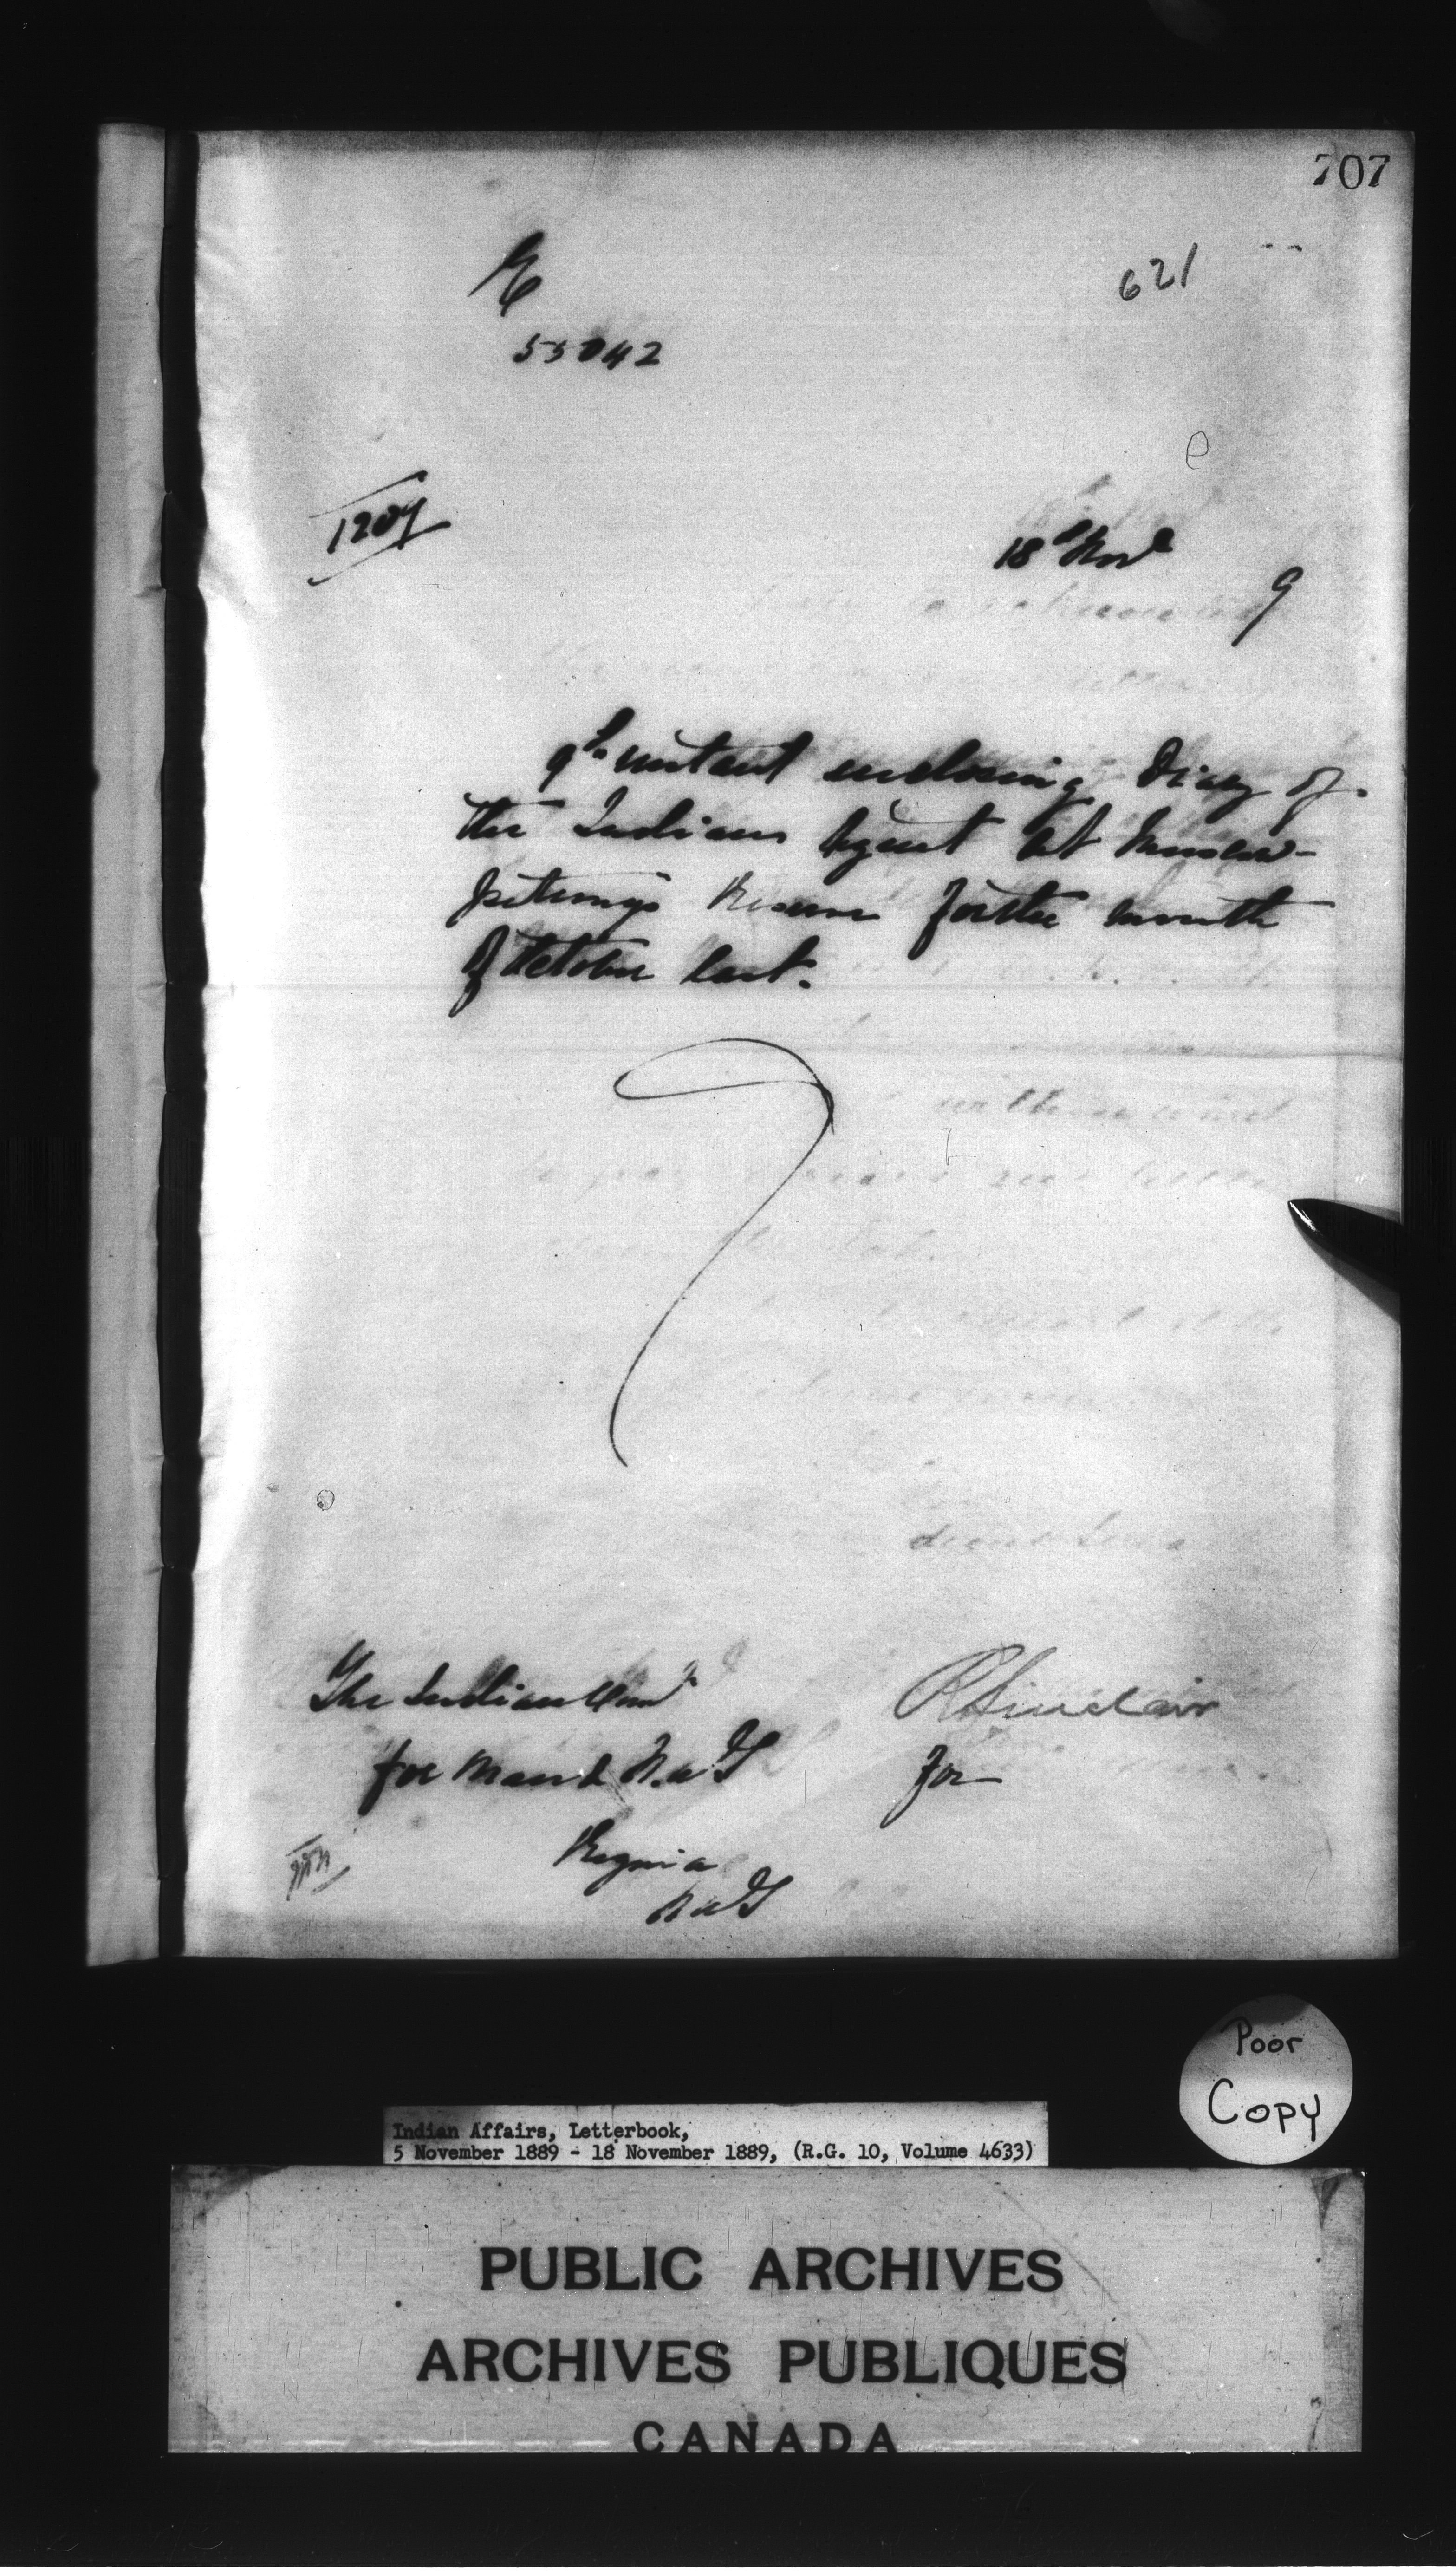 707
621
55042
1207
18th Nov
9
9th instant enclosing Diary of
the Indian Agent at Muscow-
petung's Reserve for the month
of October last.
The Indian Comr
for Man & N.W.T
Regina
N W T
R Sinclair
for
Poor
Copy
Indian Affairs, Letterbook,
5 November 1889 - 18 November 1889, (R.G. 10, Volume 4633)
PUBLIC ARCHIVES
ARCHIVES PUBLIQUES
CANADA